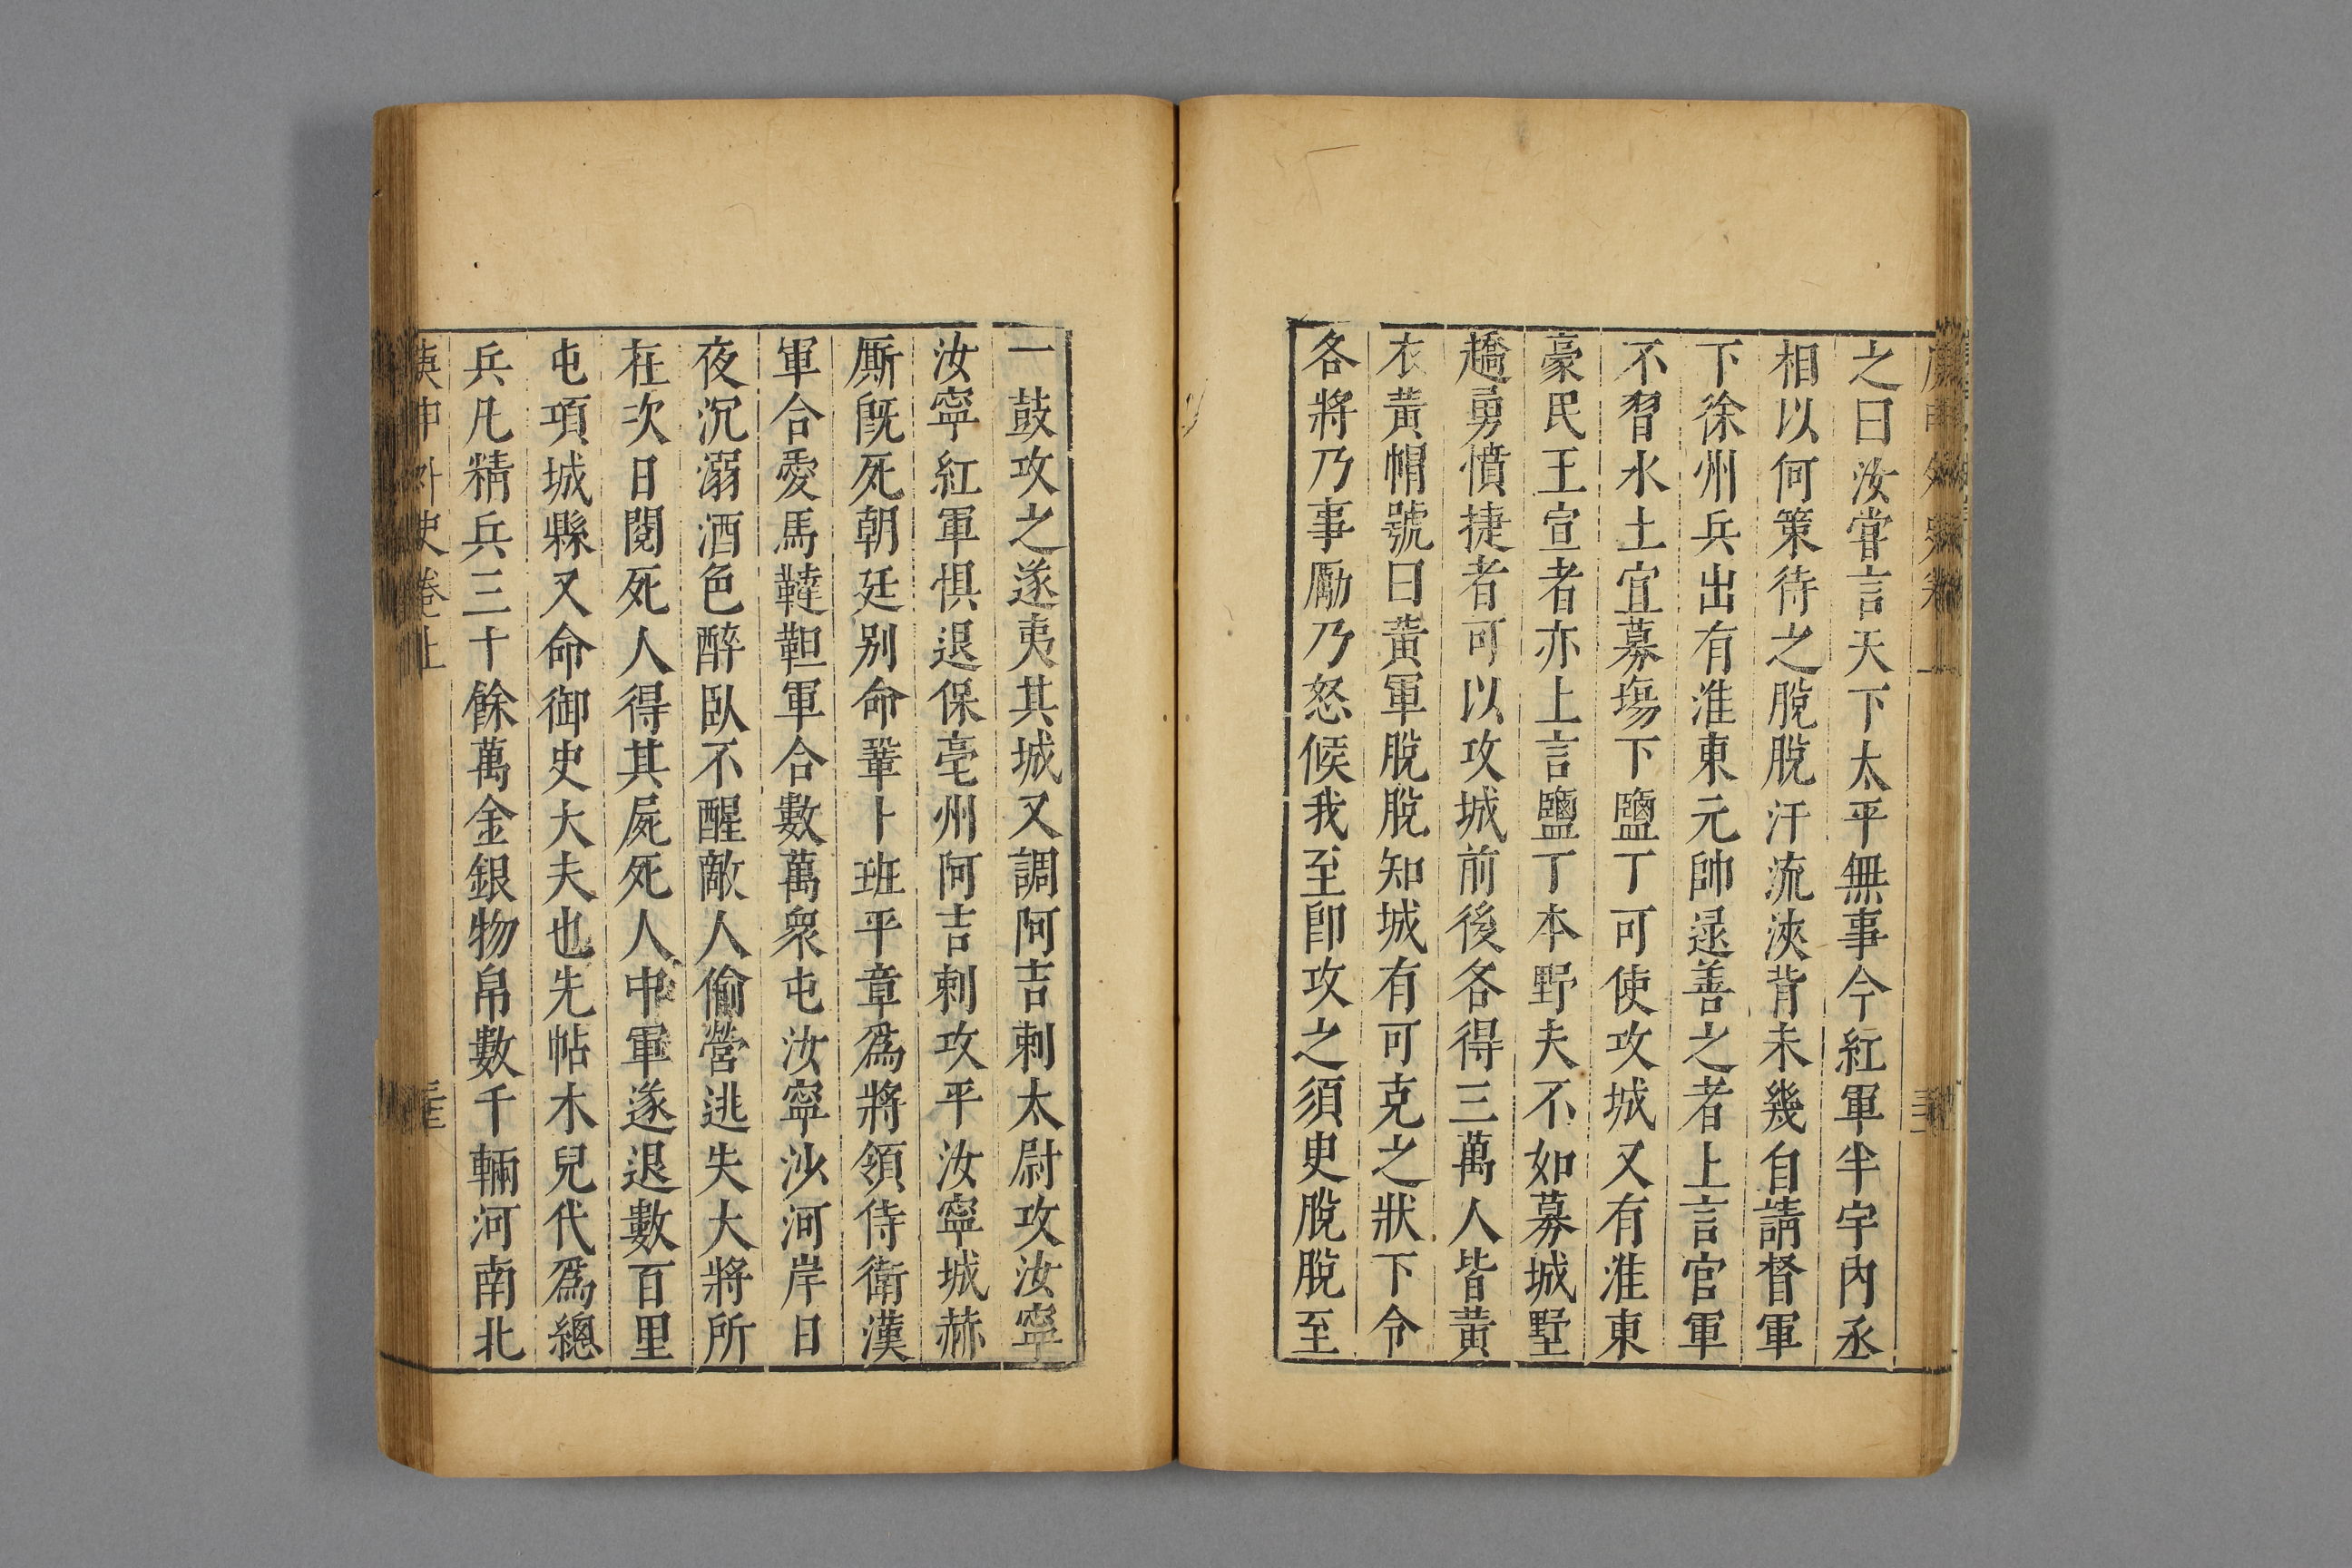 之曰汝甞言天下太平無事今紅軍半宇內丞
相以何策待之脫脫汗流浹背未幾自請督軍
下徐州兵出有淮東元帥逯善之者上言官軍
不習水土宜募塲下鹽丁可使攻城又有淮東
豪民王宣者亦上言鹽丁本野夫不如募城墅
趫勇憤捷者可以攻城前後各得三萬人皆黃
衣黃帽號曰黃軍脫脫知城有可克之狀下令
各將乃事勵乃怒候我至卽攻之須臾脫脫至
一鼓攻之遂夷其城又調阿吉剌太尉攻汝寧
汝寧紅軍惧退保亳州阿吉剌攻平汝寧城赫
厮旣死朝廷别命鞏卜班平章爲將領侍衛漢
軍合愛馬韃靼軍合數萬衆屯汝寧沙河岸日
夜沉溺酒色醉臥不醒敵人偷營迯失大將所
在次日閱死人得其屍死人人中軍遂退數百里
屯項城縣又命御史大夫也先帖木兒代爲總
兵凡精兵三十餘萬金銀物帛數千輛河南北
庚申外史卷上